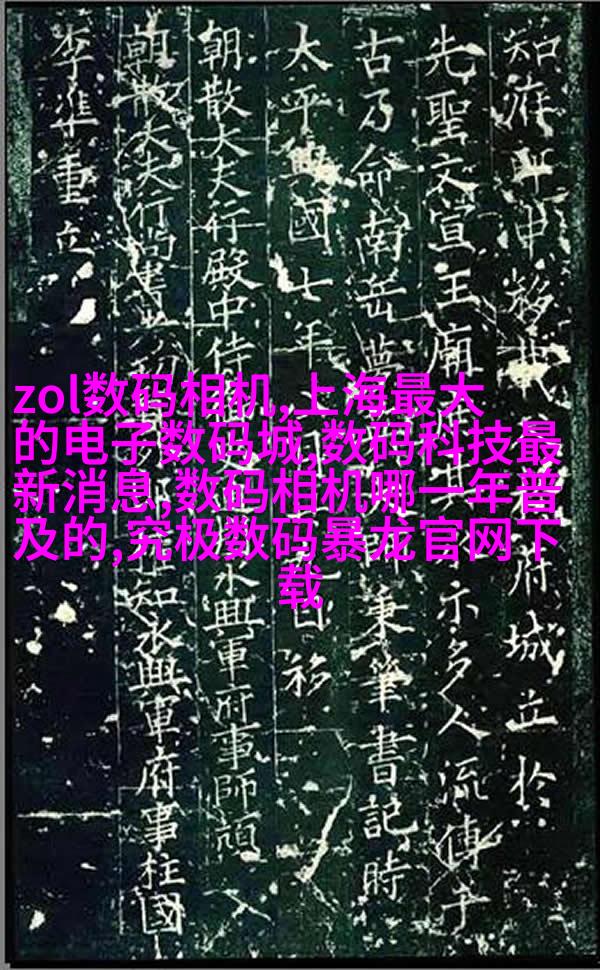 知府移府城立於
先聖文宣王廟示多人流傳于
古乃命南岳夢秉筆書記時
太平興國七年日移
朝散大夫行殿中侍永興軍府事師頏
朝散大夫行尚書知永興軍府事柱國
李準重立
zol数码相机,上海最大
的电子数码城,数码科技最
新消息,数码相机哪一年普
及的,究极数码暴龙官网下
载